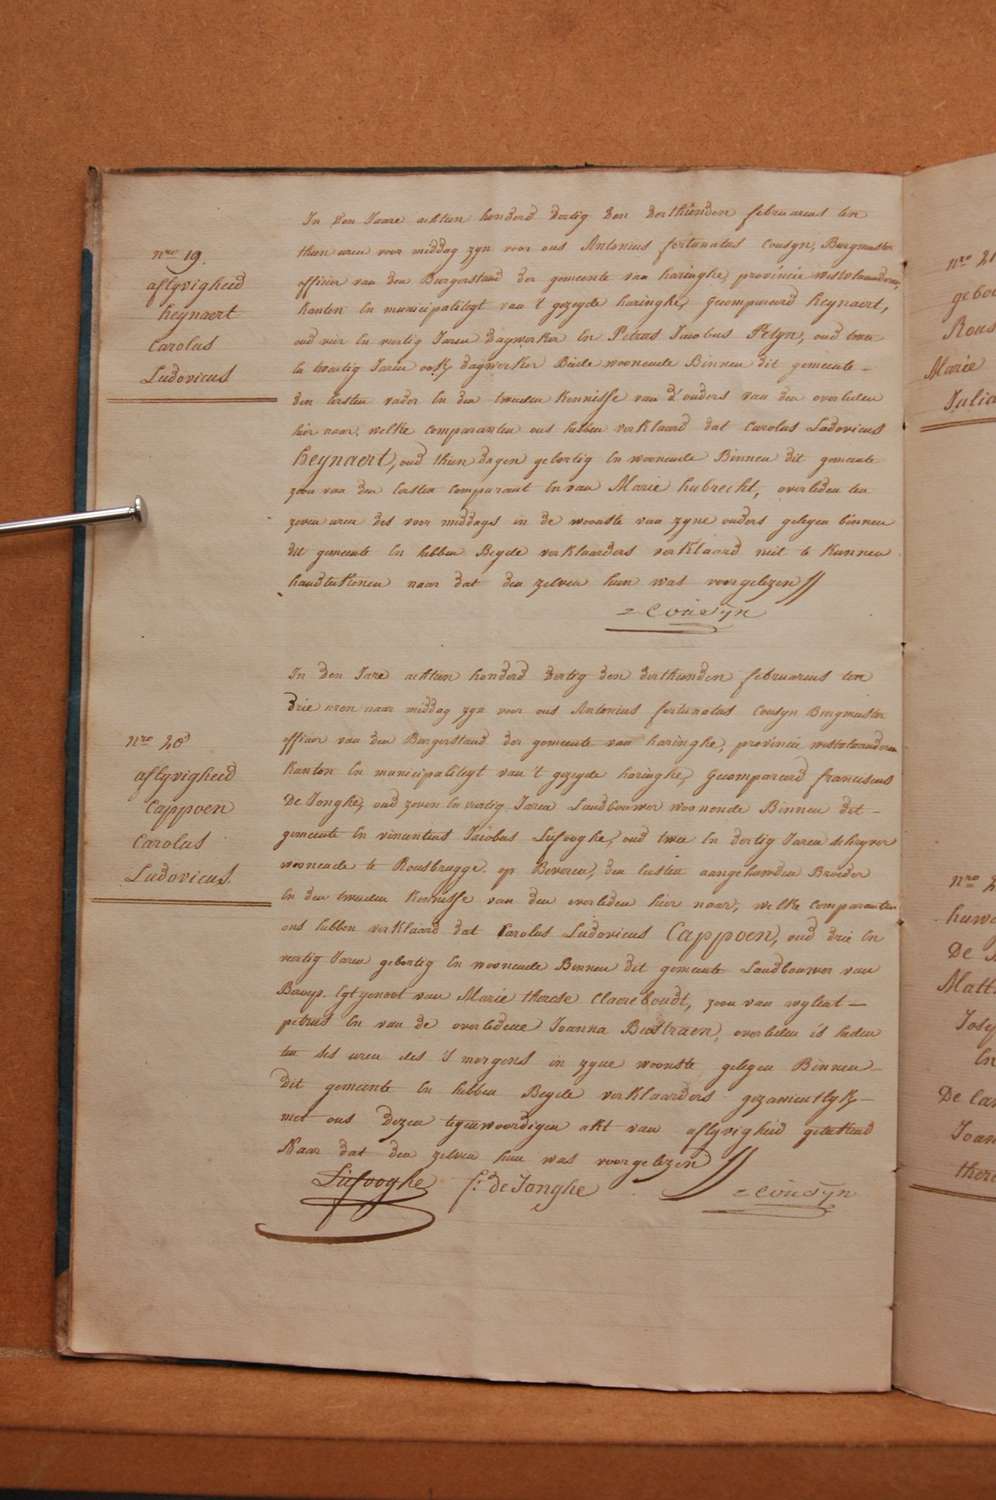 nro 19.
aflyvigheid
heynaert
Carolus
Ludovicus
In den Jaare achtien honderd dertig den derthienden februarius ten
thien uren voor middag zyn voor ons Antonius fortunatus Cousyn, Burgmeester
officier van den Burgerstand der gemeente van haringhe, provincie westvlaanderen,
kanton en municipaliteyt van 't gezeyde haringhe, Gecompareerd heynaert,
oud vier en veertig Jaren dagwerker en Petrus Jacobus Pelyn, oud
en twintig Jaren ook dagwerker Beide woonende Binnen dit gemeente -
den eersten vader en den tweeden kennisse van d'ouders van den overleden
hier naer, welke comparanten ons hebben verklaard dat Carolus Ludovicus
heynaert, oud thien dagen gebortig en woonende Binnen dit gemeente
zoon van den eersten comparant en van Marie hubrecht, overleden ten
zeven uren des voor middags in de wooniste van zyne ouders gelegen binnen
dit gemeente en hebben Beyde verklaarders verklaard niet te kunnen
handteekenen naer dat den zelven hun was voorgelezen //
Cousyn
nro 20
aflyvigheid
Cappoen
Carolus
Ludovicus.
In den Jare achtien honderd dertig den derthienden februarius ten
drie uren naer middag zyn voor ons Antonius fortunatus Cousyn Burgmeester
officier van den Burgerstand der gemeente van haringhe, provincie westvlaanderen
kanton en municipaliteyt van 't gezeyde haringhe, Gecompareerd franciscus
De Jonghe, oud zeven en veertig Jaren Landbouwer woonende Binnen dit -
gemeente en vincentius Jacobus Lafooghe, oud twee en dertig Jaren schryver
woonende te Rousbrugge op Beveren, den eersten aangehuwden Broeder
en den tweeden kennisse van den overleden hier naer, welke comparanten
ons hebben verklaard dat Carolus Ludovicus Cappoen, oud drie en
veertig Jaren gebortig en woonende Binnen dit gemeente Landbouwer van
egtgenoot van Marie therese Claereboudt, zoon van wylent -
petrus en van de overledene Joanna Bustraen, overleden is heden
ten ses uren des 's morgens in zyne wooniste gelegen Binnen -
dit gemeente en hebben Beyde verklaarders gezamentlyk -
met ons dezen tegenwoordigen akt van aflyvigheid geteekend
Naer dat den zelven hun was voorgelezen //
Lafooghe f: de Jonghe Cousyn
nro 21
Marie
nro 2
De
Matt
De